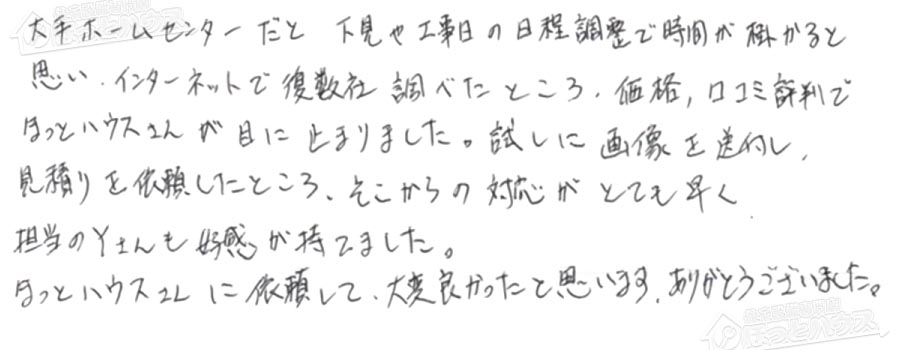 大手ホームセンターだと 下見や工事日の日程調整で時間が掛かると
思い、インターネットで復数社 調べたところ、価格, 口コミ評判で
ほっとハウスさんが目に止まりました。試しに 画像を送付し、
見積りを依頼したところ、そこからの対応がとても早く
担当のYさんも好感が持てました。
ほっとハウスさんに依頼して、大変良かったと思います。ありがとうございました。
ほっとハウス